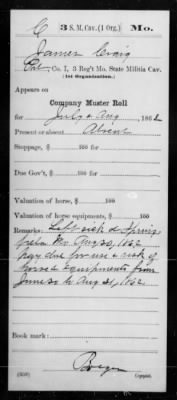 C 3 S.M. Cav. (1 Org.) Mo.
James Craig
Co. I, 3 Reg't Mo. State Militia Cav.
(1st Organization.)
Appears on
Company Muster Roll
for July & Aug, 1862
Present or absent Absent
Stoppage, $ 100 for
Due Gov't, $ 100 for
Valuation of horse, $ 100
Valuation of horse equipments, $ 100
Remarks: Left sick at Spring
field Mo Aug 20, 1862
pay due for use & risk of
horse & equipments from
June 30 to Aug 31, 1862
Book mark:
(358)
Copyist.